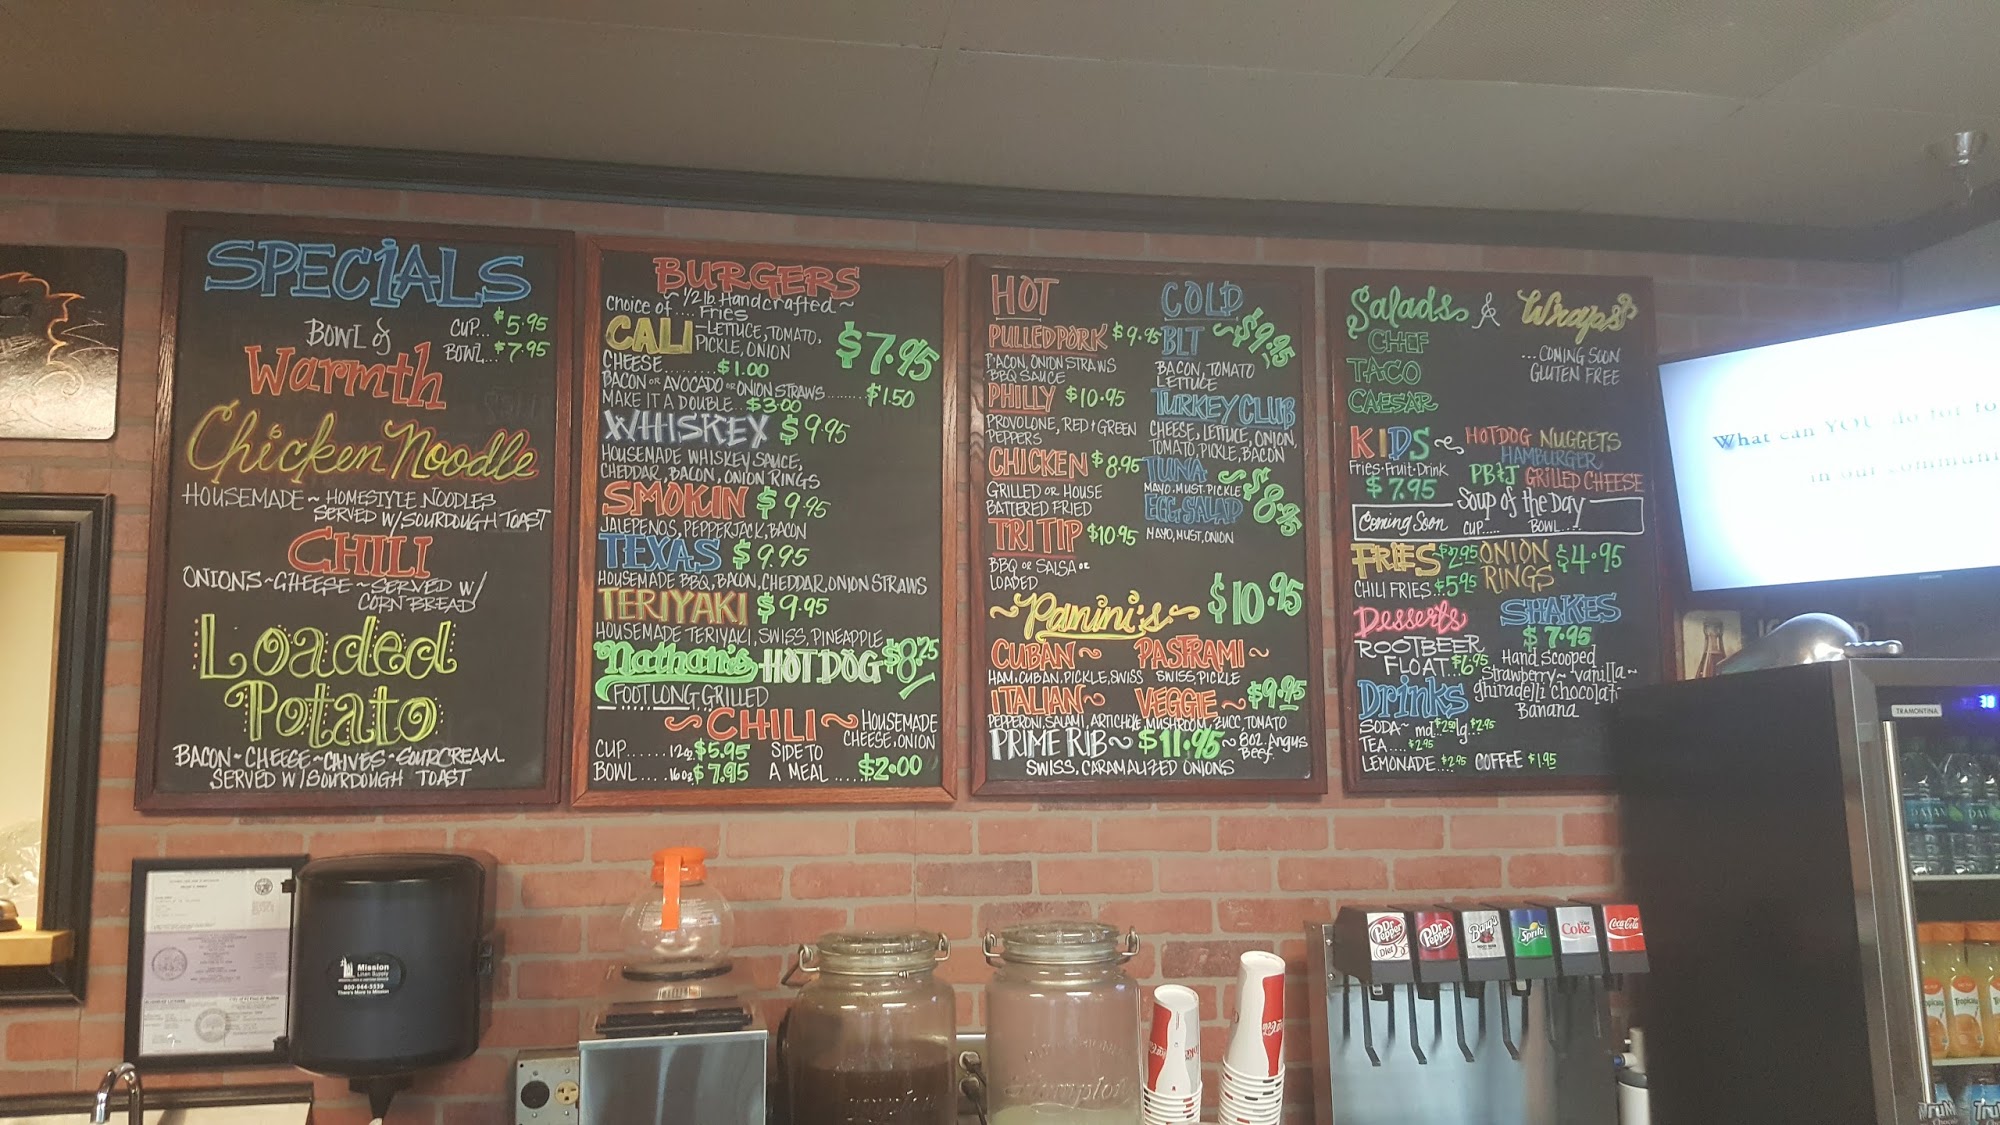 SPECIALS
BOWL of
CUP... $5.95
BOWL... $7.95
Warmth
Chicken Noodle
HOUSEMADE ~ HOMESTYLE NOODLES
SERVED W/SOURDOUGH TOAST
CHILI
ONIONS~CHEESE~SERVED W/
CORN BREAD
Loaded
Potato
BACON~CHEESE~CHIVES~SOURCREAM
SERVED W/SOURDOUGH TOAST
BURGERS
~ 1/2 lb. Handcrafted ~
Choice of .... Fries
CALI ~LETTUCE, TOMATO,
PICKLE, ONION
$7.95
CHEESE........$1.00
BACON or AVOCADO or ONION STRAWS........$1.50
MAKE IT A DOUBLE...$3.00
WHISKEY $9.95
HOUSEMADE WHISKEY SAUCE,
CHEDDAR, BACON, ONION RINGS
SMOKIN $9.95
JALEPENOS, PEPPERJACK, BACON
TEXAS $9.95
HOUSEMADE BBQ, BACON, CHEDDAR, ONION STRAWS
TERIYAKI $9.95
HOUSEMADE TERIYAKI, SWISS, PINEAPPLE
Nathan's HOT DOG $8.25
FOOTLONG, GRILLED
~CHILI~ HOUSEMADE
CHEESE, ONION
CUP....... 12oz $5.95
BOWL.... 16oz $7.95
SIDE TO
A MEAL ..... $2.00
HOT
PULLED PORK $9.95
BACON, ONION STRAWS
BBQ SAUCE
PHILLY $10.95
PROVOLONE, RED + GREEN
PEPPERS
CHICKEN $8.95
GRILLED OR HOUSE
BATTERED FRIED
TRI TIP $10.95
BBQ OR SALSA OR
LOADED
COLD
BLT ~$9.95
BACON, TOMATO
LETTUCE
TURKEY CLUB
CHEESE, LETTUCE, ONION,
TOMATO, PICKLE, BACON
TUNA
MAYO, MUST, PICKLE
$8.95
EGG SALAD
MAYO, MUST, ONION
~Panini's~ $10.95
CUBAN~
HAM, CUBAN, PICKLE, SWISS
PASTRAMI~
SWISS, PICKLE
ITALIAN~
PEPPERONI, SALAMI, ARTICHOKE
VEGGIE~ $9.95
MUSHROOM, ZUCC, TOMATO
PRIME RIB~ $11.95 ~ 8oz. Angus
Beef.
SWISS, CARAMALIZED ONIONS
Salads & Wraps
CHEF
TACO
CAESAR
...COMING SOON
GLUTEN FREE
KIDS~ HOTDOG NUGGETS
HAMBURGER
Fries·Fruit·Drink
$7.95
PB&J GRILLED CHEESE
Soup of the Day
Coming Soon CUP..... BOWL.....
FRIES $2.95
CHILI FRIES.. $5.95
ONION
RINGS $4.95
Desserts
ROOTBEER
FLOAT $6.95
SHAKES
$7.95
Hand scooped
Strawberry~Vanilla~
Ghiradelli Chocolat
Banana
Drinks
SODA~ md. $2.50 lg. $2.95
TEA.... $2.95
LEMONADE.... $2.95 COFFEE $1.95
What can YOU do for
in our communi
TRAMONTINA
Mission
Linen Supply
800-944-5539
There's More to Mission
Dr Pepper
Diet
Dr Pepper
Barq's
Sprite
Diet
Coke
Coca-Cola
Tropicana